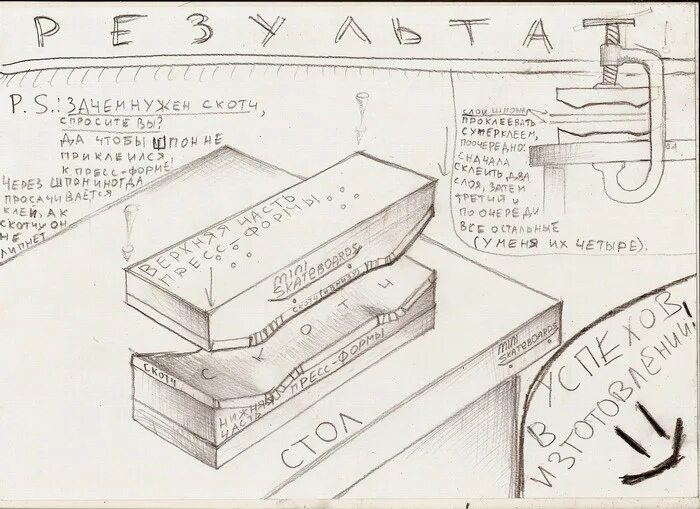 РЕЗУЛЬТА
P.S.: ЗАЧЕМ НУЖЕН СКОТЧ,
СПРОСИТЕ ВЫ?
ДА ЧТОБЫ ШПОН НЕ
ПРИКЛЕИЛСЯ
К ПРЕСС-ФОРМЕ,
ЧЕРЕЗ ШПОН ИНОГДА
ПРОСАЧИВАЕТСЯ
КЛЕЙ, А К
СКОТЧУ ОН
НЕ
ЛИПНЕТ
СЛОИ ШПОНА
ПРОКЛЕЕВАТЬ
СУПЕРКЛЕЕМ,
ПООЧЕРЕДНО:
СНАЧАЛА
СКЛЕИТЬ ДВА
СЛОЯ, ЗАТЕМ
ТРЕТИЙ И
ПО ОЧЕРЕДИ
ВСЕ ОСТАЛЬНЫЕ
(У МЕНЯ ИХ ЧЕТЫРЕ).
ВЕРХНЯЯ ЧАСТЬ
ПРЕСС-ФОРМЫ
MINI
SKATEBOARDS
СКОТЧ (ВНИЗУ)
СКОТЧ
СКОТЧ
НИЖНЯЯ
ЧАСТЬ
ПРЕСС-ФОРМЫ
MINI
SKATEBOARDS
СТОЛ
УСПЕХОВ,
В
ИЗГОТОВЛЕНИИ,